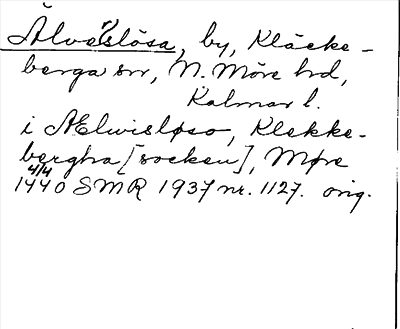 Älvelslösa, by, Kläcke-
berga sn, N. Möre hd,
Kalmar l.
i Ælwisløso, Klekke-
bergha [socken], Møre
4/4
1440 SMR 1937 nr. 1127. orig.